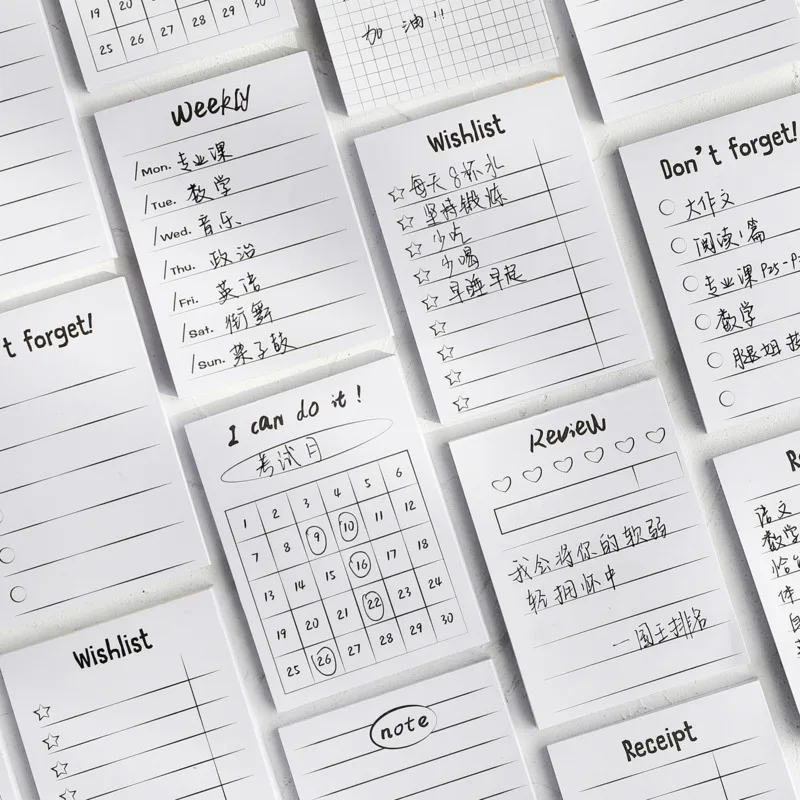 19 20 21 22 23 24
25 26 27 28 29 30
加油!!
Weekly
/Mon. 专业课
/Tue. 数学
/Wed. 音乐
/Thu. 政治
/Fri. 英语
/Sat. 街舞
/Sun. 架子鼓
Wishlist
每天8杯水
坚持锻炼
少吃
少喝
早睡早起
Don't forget!
大作文
阅读1篇
专业课 P25-P
数学
t forget!
I can do it!
考试日
1 2 3 4 5 6
7 8 9 10 11 12
13 14 15 16 17 18
19 20 21 22 23 24
25 26 27 28 29 30
Review
我会将你的软弱
轻拥怀中
—国王排名
Re
语文
数学
体
Wishlist
note
Receipt